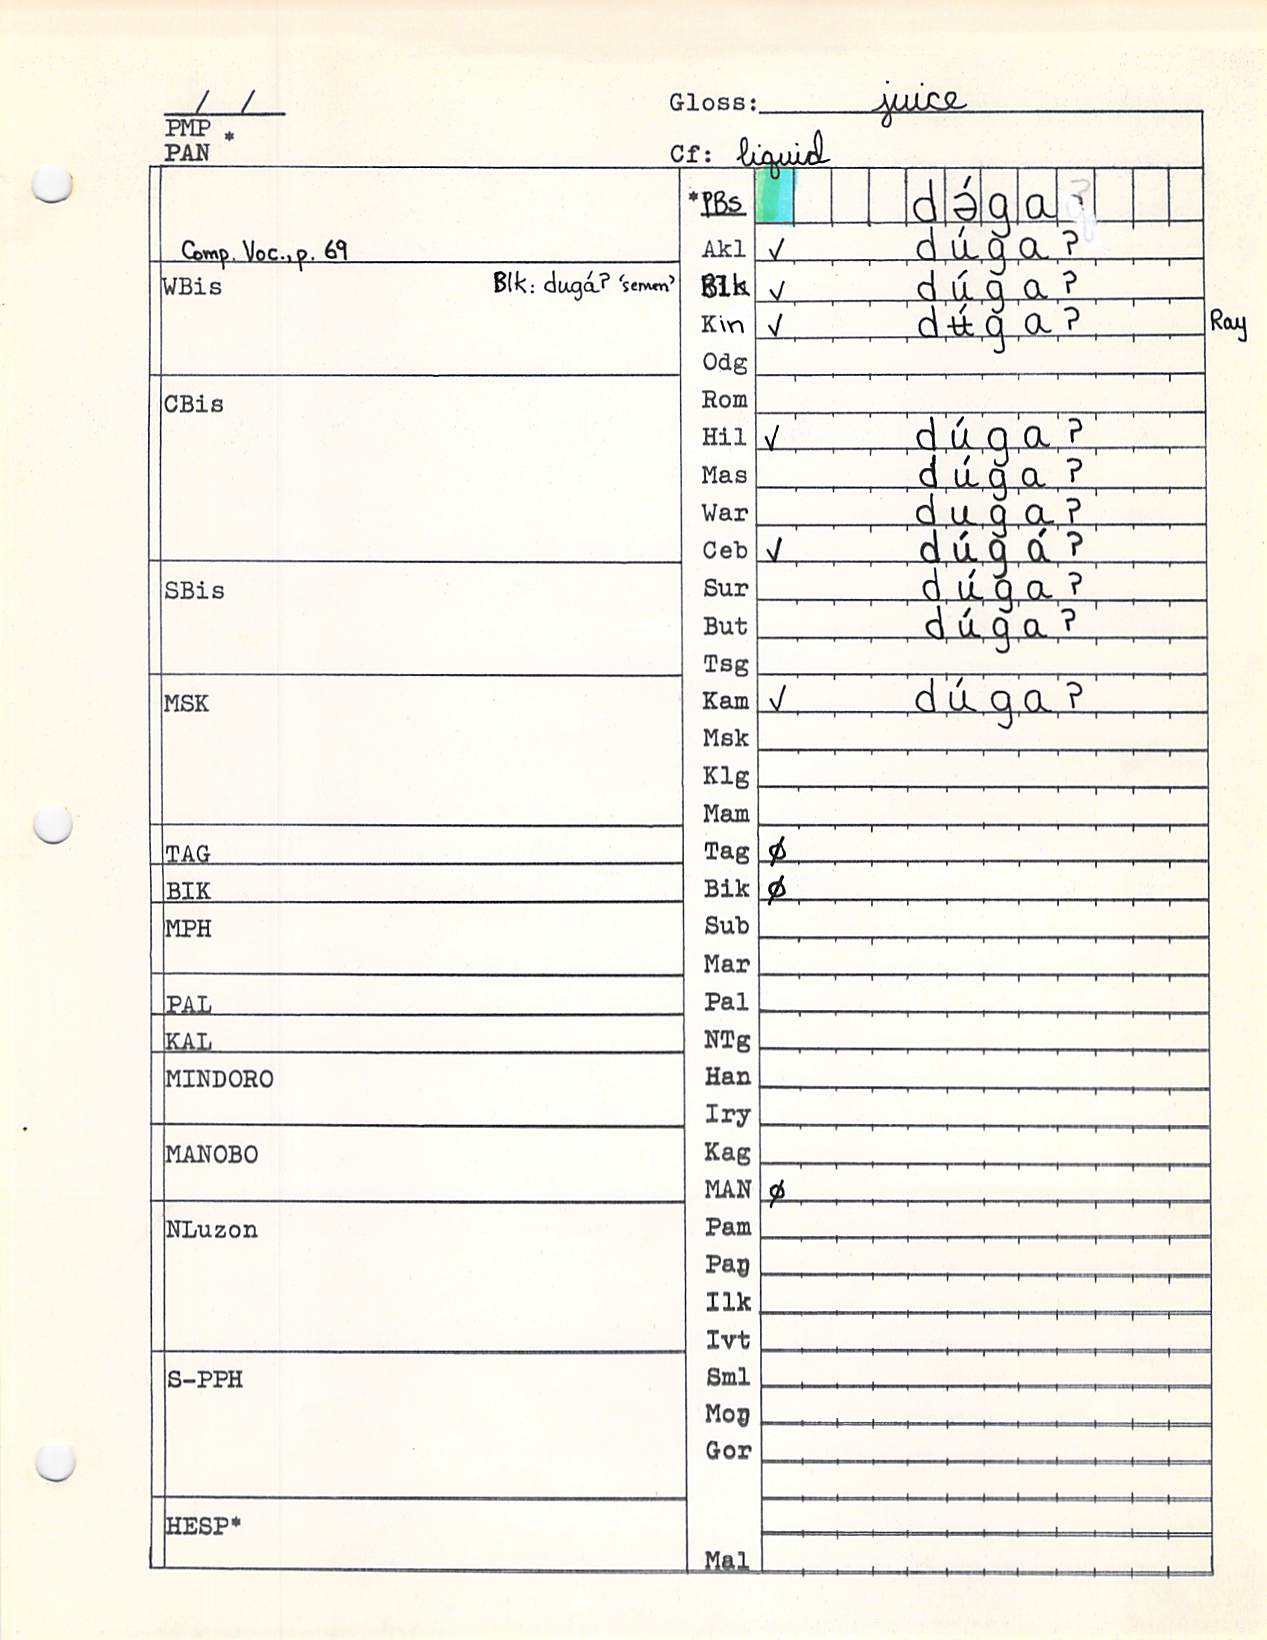 / /
Gloss: juice
PMP *
PAN
Cf: liquid
*PBs də́gaʔ
Comp. Voc., p. 69
Akl ✓ dúgaʔ
WBis Blk: dugáʔ ‘semen’ Blk ✓ dúgaʔ
Kin ✓ dʉ́gaʔ Ray
Odg
CBis Rom
Hil ✓ dúgaʔ
Mas dúgaʔ
War dugaʔ
Ceb ✓ dúgáʔ
SBis Sur dúgaʔ
But dúgaʔ
Tsg
MSK Kam ✓ dúgaʔ
Msk
Klg
Mam
TAG Tag ∅
BIK Bik ∅
MPH Sub
Mar
PAL Pal
KAL NTg
MINDORO Han
Iry
MANOBO Kag
MAN ∅
NLuzon Pam
Paŋ
Ilk
Ivt
S-PPH Sml
Moŋ
Gor
HESP*
Mal